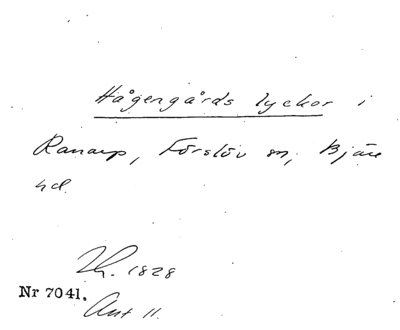 Hågengårds lyckor i
Ranarp, Förslöv sn, Bjäre
hd.
Lh. 1828
Nr 7041.
Akt 11.